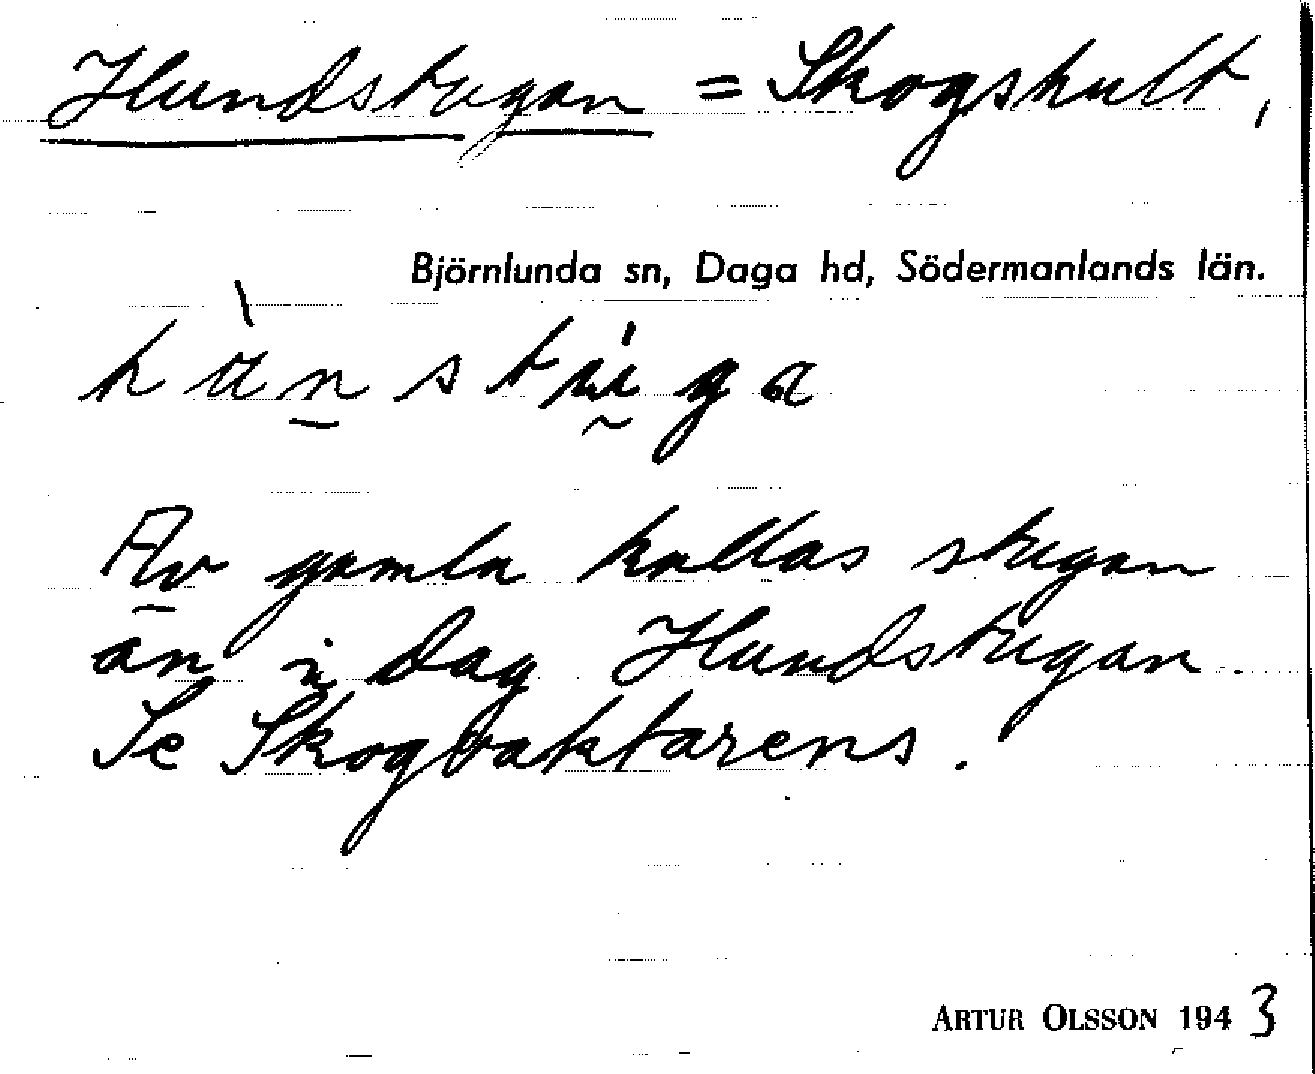 Hundstugan = Skogshult,
Björnlunda sn, Daga hd, Södermanlands län.
Av gamla kallas stugan
än i dag Hundstugan.
Se Skogvaktarens.
ARTUR OLSSON 1943